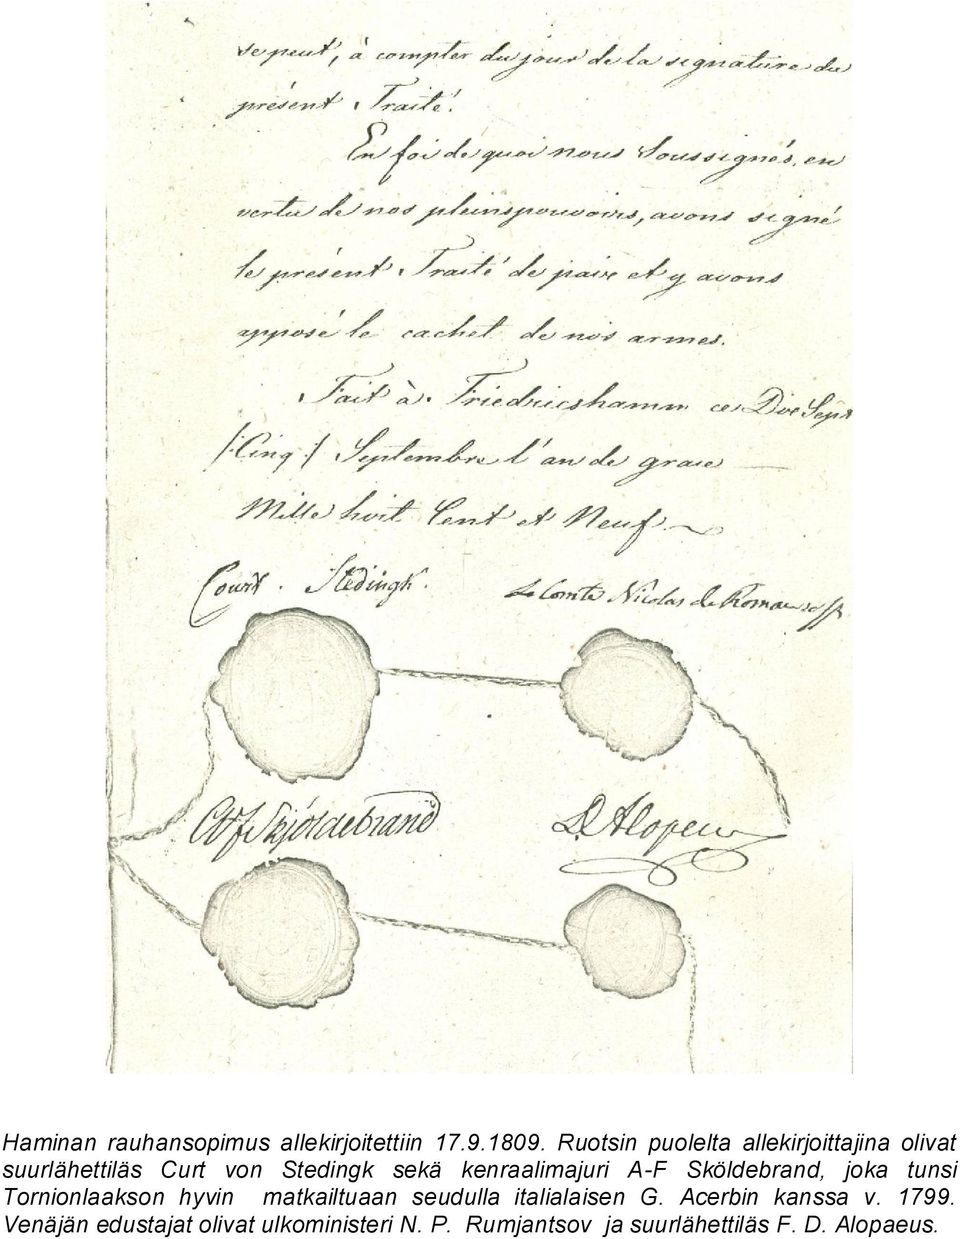 se peut, à compter du jour de la signature du
présent Traité.
En foi de quoi nous Soussignés, en
vertu de nos pleinspouvoirs, avons signé
le présent Traité de paix et y avons
apposé le cachet de nos armes.
Fait à Friedrichshamm ce Dix Sept
/:Cinq:/ Septembre l'an de grace
Mille huit Cent et Neuf.
Court. Stedingk. Le Comte Nicolas de Romanzoff
Skjöldebrand D. Alopeus
Haminan rauhansopimus allekirjoitettiin 17.9.1809. Ruotsin puolelta allekirjoittajina olivat
suurlähettiläs Curt von Stedingk sekä kenraalimajuri A-F Sköldebrand, joka tunsi
Tornionlaakson hyvin matkailtuaan seudulla italialaisen G. Acerbin kanssa v. 1799.
Venäjän edustajat olivat ulkoministeri N. P. Rumjantsov ja suurlähettiläs F. D. Alopaeus.